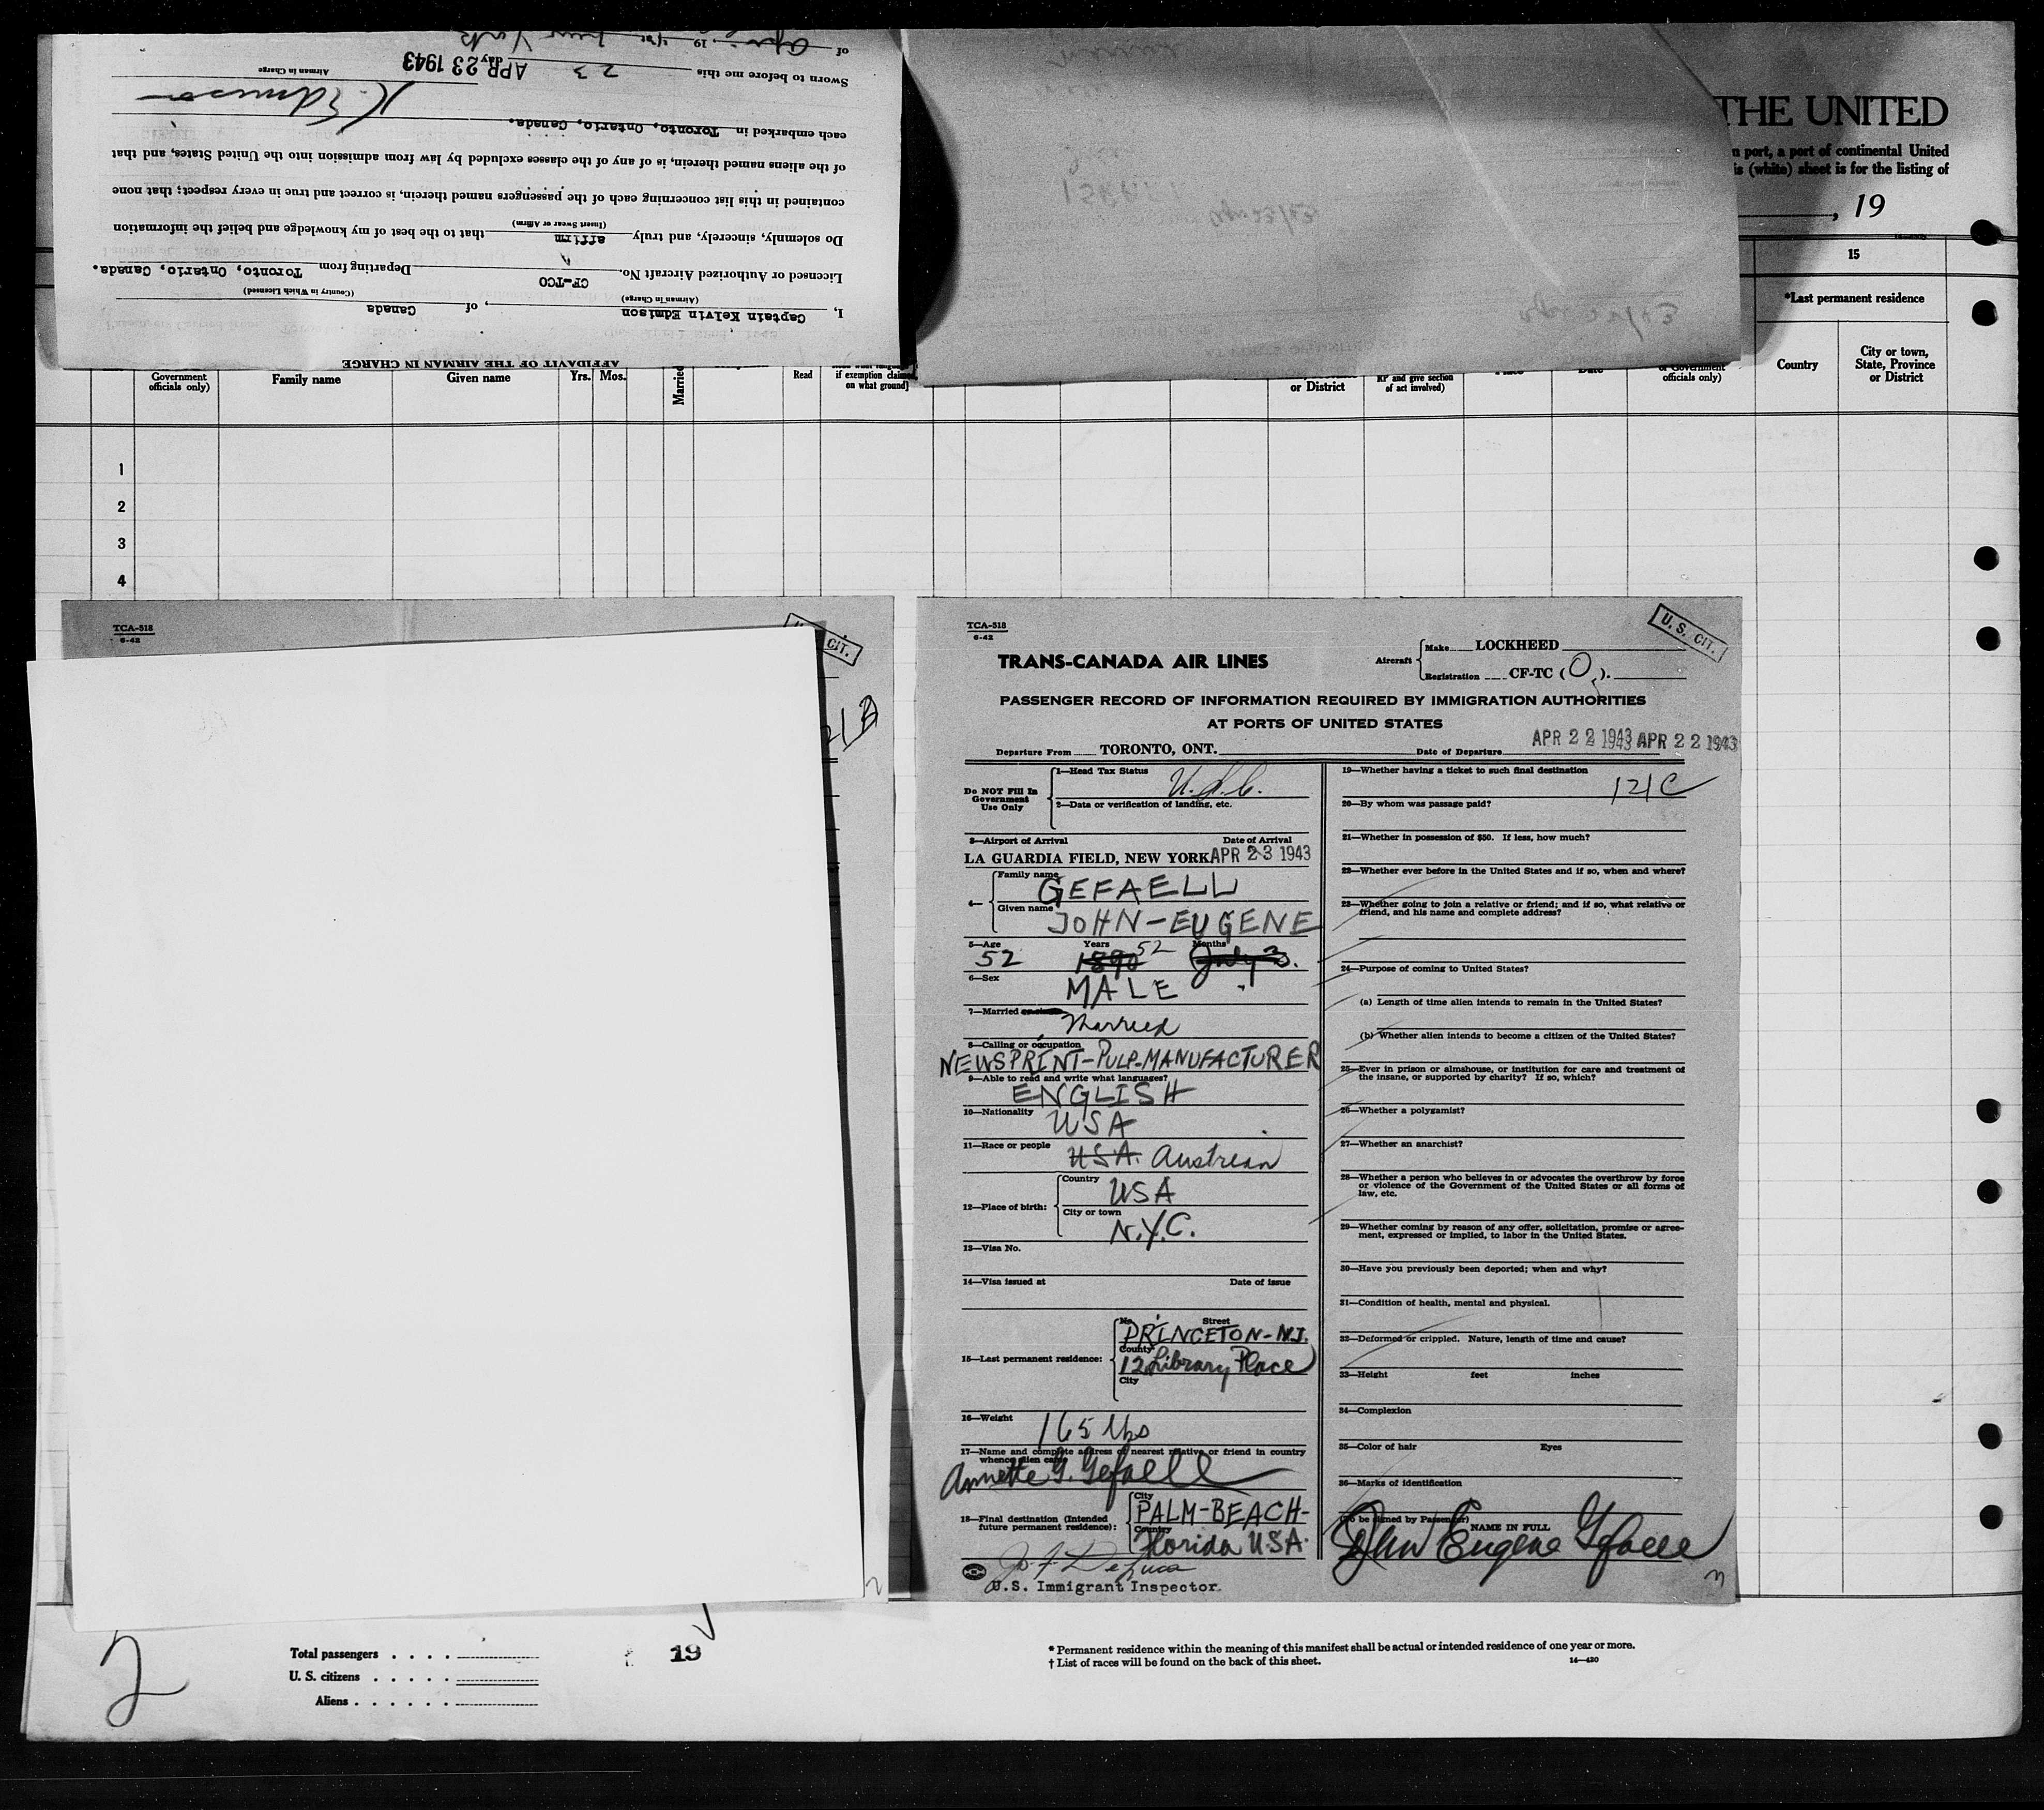 AFFIDAVIT OF THE AIRMAN IN CHARGE
I, Captain Kelvin Edmison, of Canada
(Airman in Charge) (Country in Which Licensed)
Licensed or Authorized Aircraft No. CF-TCO Departing from Toronto, Ontario, Canada.
Do solemnly, sincerely, and truly affirm that to the best of my knowledge and belief the information
(Insert Swear or Affirm)
contained in this list concerning each of the passengers named therein, is correct and true in every respect; that none
of the aliens named therein, is of any of the classes excluded by law from admission into the United States, and that
each embarked in Toronto, Ontario, Canada.
K. Edmison
Airman in Charge
Sworn to before me this 23 day APR 23 1943
of 19 New York
THE UNITED
n port, a port of continental United
is (white) sheet is for the listing of
, 19
15
*Last permanent residence
Government officials only)
Family name
Given name
Yrs. Mos.
Married
Read
if exemption claimed, on what ground]
or District
and give section of act involved)
officials only)
Country
City or town, State, Province or District
1
2
3
4
TCA-518
6-42
CIT.
TCA-518
6-42
U. S. CIT.
TRANS-CANADA AIR LINES
Aircraft Make LOCKHEED
Registration CF-TC (O).
PASSENGER RECORD OF INFORMATION REQUIRED BY IMMIGRATION AUTHORITIES
AT PORTS OF UNITED STATES
Departure From TORONTO, ONT. Date of Departure APR 22 1943 APR 22 1943
Do NOT Fill In Government Use Only
1—Head Tax Status U.S.C.
2—Data or verification of landing, etc.
3—Airport of Arrival Date of Arrival
LA GUARDIA FIELD, NEW YORK APR 23 1943
4— Family name GEFAELL
Given name JOHN-EUGENE
5—Age Years Months
52 1890 52 July 3.
6—Sex MALE
7—Married or single Married
8—Calling or occupation
NEWSPRINT-PULP-MANUFACTURER
9—Able to read and write what languages?
ENGLISH
10—Nationality USA
11—Race or people USA. Austrian
12—Place of birth: Country USA
City or town N.Y.C.
13—Visa No.
14—Visa issued at Date of issue
15—Last permanent residence: No. Street
PRINCETON-N.J.
County
12 Library Place
City
16—Weight 165 lbs
17—Name and complete address of nearest relative or friend in country whence alien came
Annette G. Gefaell
18—Final destination (Intended future permanent residence): City
PALM-BEACH-
Country
Florida USA.
U.S. Immigrant Inspector.
19—Whether having a ticket to such final destination
121C
20—By whom was passage paid?
21—Whether in possession of $50. If less, how much?
22—Whether ever before in the United States and if so, when and where?
23—Whether going to join a relative or friend; and if so, what relative or
friend, and his name and complete address?
24—Purpose of coming to United States?
(a) Length of time alien intends to remain in the United States?
(b) Whether alien intends to become a citizen of the United States?
25—Ever in prison or almshouse, or institution for care and treatment of
the insane, or supported by charity? If so, which?
26—Whether a polygamist?
27—Whether an anarchist?
28—Whether a person who believes in or advocates the overthrow by force
or violence of the Government of the United States or all forms of
law, etc.
29—Whether coming by reason of any offer, solicitation, promise or agree-
ment, expressed or implied, to labor in the United States.
30—Have you previously been deported; when and why?
31—Condition of health, mental and physical.
32—Deformed or crippled. Nature, length of time and cause?
33—Height feet inches
34—Complexion
35—Color of hair Eyes
36—Marks of identification
(To be signed by Passenger) NAME IN FULL
John Eugene Gefaell
2
Total passengers . . . .
U. S. citizens . . . . .
Aliens . . . . . .
19
* Permanent residence within the meaning of this manifest shall be actual or intended residence of one year or more.
† List of races will be found on the back of this sheet.
14—420